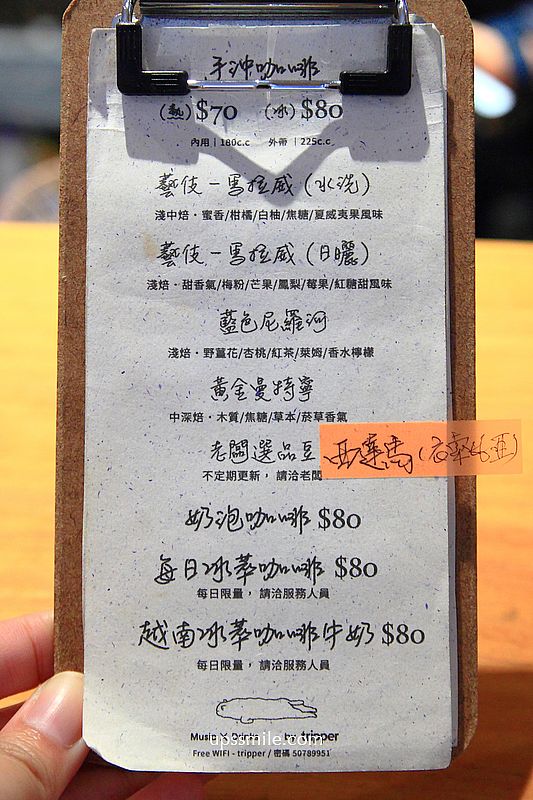 手沖咖啡
(熱)$70 (冰)$80
內用 | 180c.c 外帶 | 225c.c
藝伎一馬拉威(水洗)
淺中焙・蜜香/柑橘/白柚/焦糖/夏威夷果風味
藝伎一馬拉威(日曬)
淺焙・甜香氣/梅粉/芒果/鳳梨/莓果/紅糖甜風味
藍色尼羅河
淺焙・野薑花/杏桃/紅茶/萊姆/香水檸檬
黃金曼特寧
中深焙・木質/焦糖/草本/菸草香氣
老闆選品豆 西達馬(衣索比亞)
不定期更新，請洽老闆
奶泡咖啡 $80
每日冰萃咖啡 $80
每日限量，請洽服務人員
越南冰萃咖啡牛奶 $80
每日限量，請洽服務人員
Music X Drinks by tripper
upssmile.com
Free WIFI - tripper / 密碼 50789951